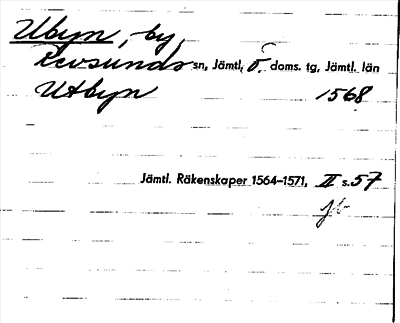 Ubyn, by,
Revsunds sn, Jämtl, ö. doms. tg, Jämtl. län
Utbyn 1568
Jämtl. Räkenskaper 1564–1571, II s. 57